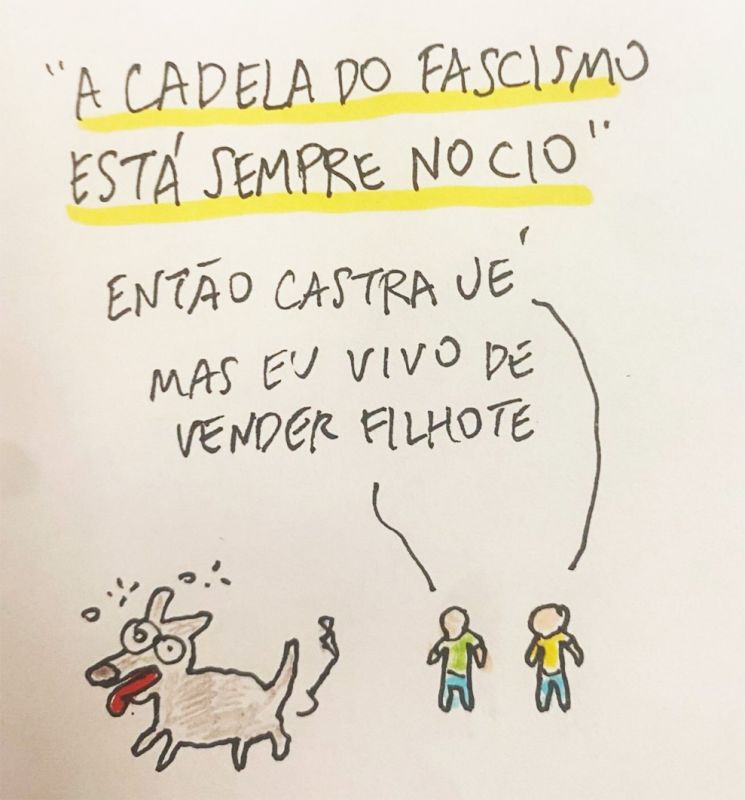 "A CADELA DO FASCISMO
ESTÁ SEMPRE NO CIO"
ENTÃO CASTRA UÉ
MAS EU VIVO DE
VENDER FILHOTE